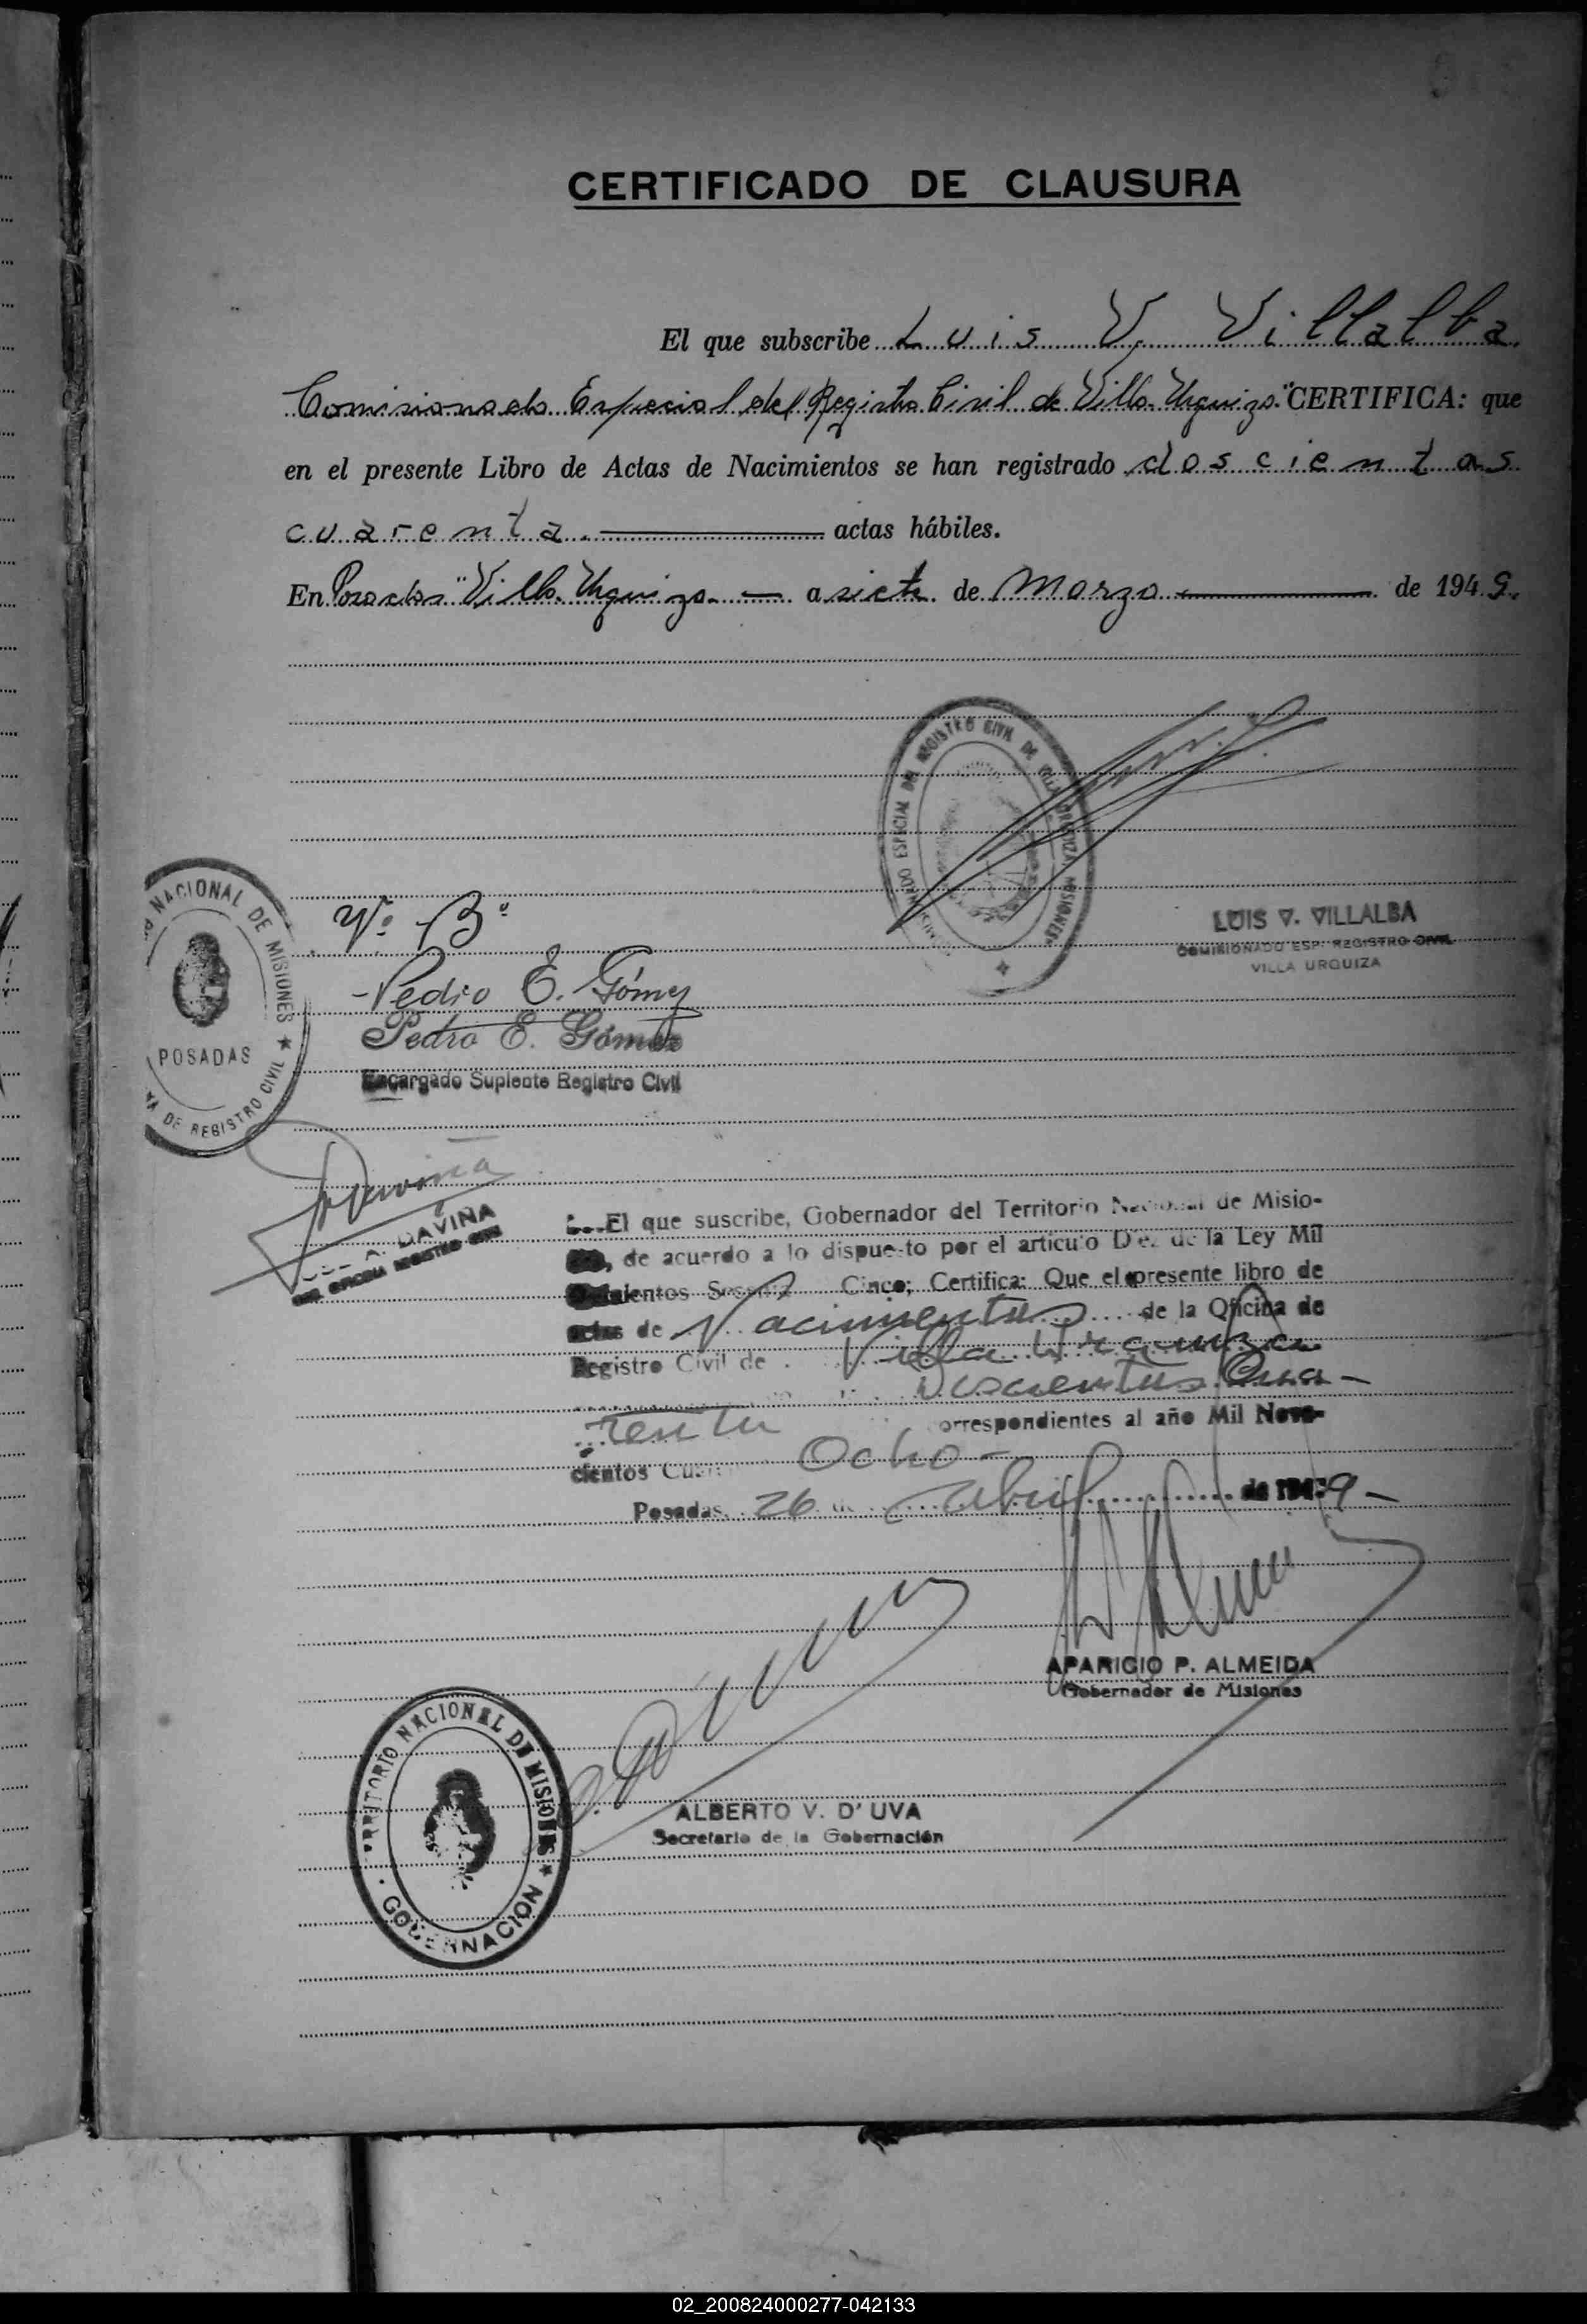 CERTIFICADO DE CLAUSURA
El que subscribe Luis V. Villalba
Comisionado Especial del Registro Civil de Villa Urquiza" CERTIFICA: que
en el presente Libro de Actas de Nacimientos se han registrado doscientas
cuarenta. actas hábiles.
En Posadas "Villa Urquiza a siete de Marzo de 1949.
ESPECIAL DEL REGISTRO CIVIL DE VILLA URQUIZA MISIONES
LUIS V. VILLALBA
COMISIONADO ESP. REGISTRO CIVIL
VILLA URQUIZA
NACIONAL DE MISIONES ★
POSADAS
DE REGISTRO CIVIL
Vº Bº
Pedro E. Gómez
Pedro E. Gómez
Encargado Suplente Registro Civil
Daviña
A. DAVIÑA
OFICINA REGISTRO CIVIL
El que suscribe, Gobernador del Territorio Nacional de Misio-
, de acuerdo a lo dispuesto por el articulo Diez de la Ley Mil
Cinco; Certifica: Que el presente libro de
actas de Nacimientos de la Oficina de
Registro Civil de Villa Urquiza
Doscientas Cua-
renta orrespondientes al año Mil Nove-
cientos Cuarenta Ocho-
Posadas, 26 de abril de 1949-
APARICIO P. ALMEIDA
Gobernador de Misiones
ALBERTO V. D'UVA
Secretario de la Gobernación
TERRITORIO NACIONAL DE MISIONES ★
GOBERNACION
02_200824000277-042133